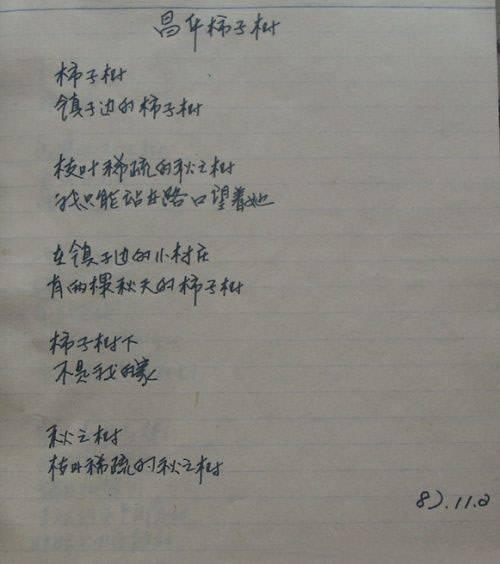 昌平柿子树
柿子树
镇子边的柿子树
枝叶稀疏的秋之树
我只能站在路口望着她
在镇子边的小村庄
有两棵秋天的柿子树
柿子树下
不是我的家
秋之树
枝叶稀疏的秋之树